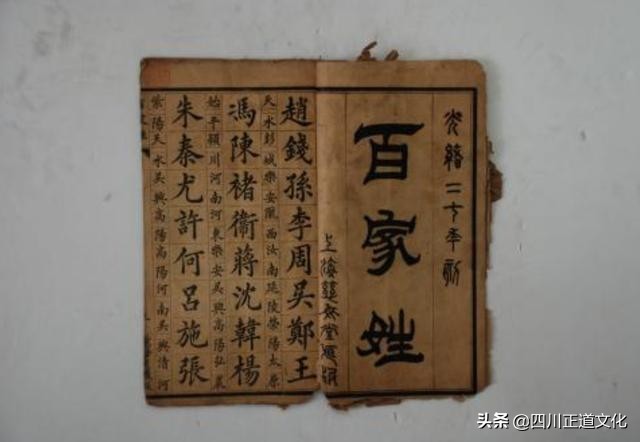 光緒二十年刻
百家姓
上海
趙錢孫李周吳鄭王
天水彭城樂安隴西汝南延陵滎陽太原
馮陳褚衛蔣沈韓楊
始平潁川河南河東樂安吳興高陽弘農
朱秦尤許何呂施張
紫陽天水吳興高陽高陽河南吳興清河
头条 @四川正道文化